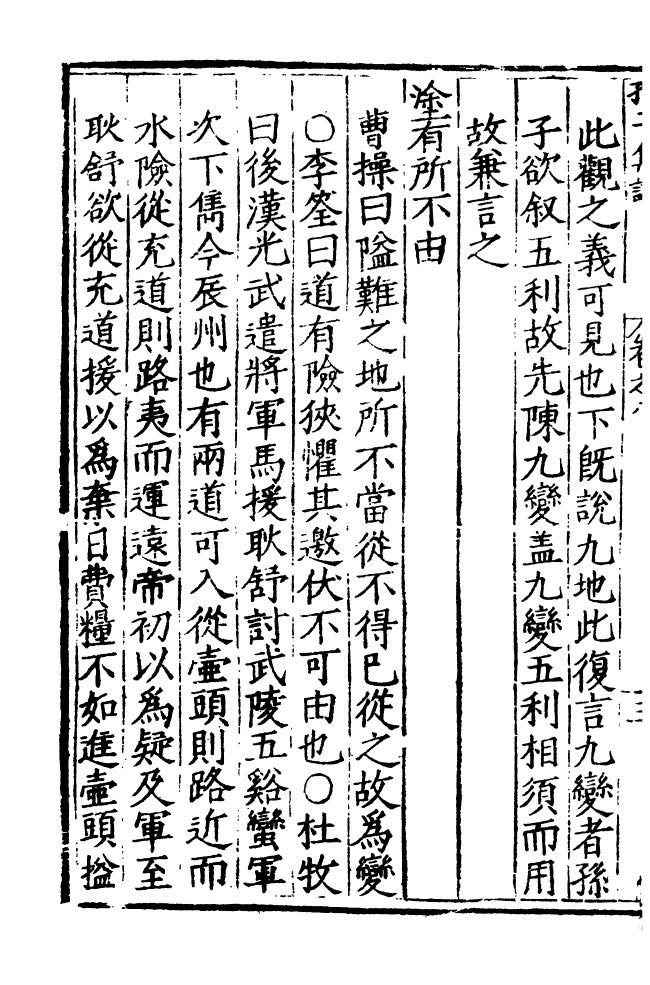 此觀之義可見也下旣說九地此復言九變者孫
子欲叙五利故先陳九變盖九變五利相須而用
故兼言之
塗有所不由
曹操曰隘難之地所不當從不得巳從之故爲變
○李筌曰道有險狹懼其邀伏不可由也○杜牧
曰後漢光武遣將軍馬援耿舒討武陵五谿蠻軍
次下雋今辰州也有兩道可入從壷頭則路近而
水險從充道則路夷而運遠帝初以爲疑及軍至
耿舒欲從充道援以爲棄日費糧不如進壷頭搤